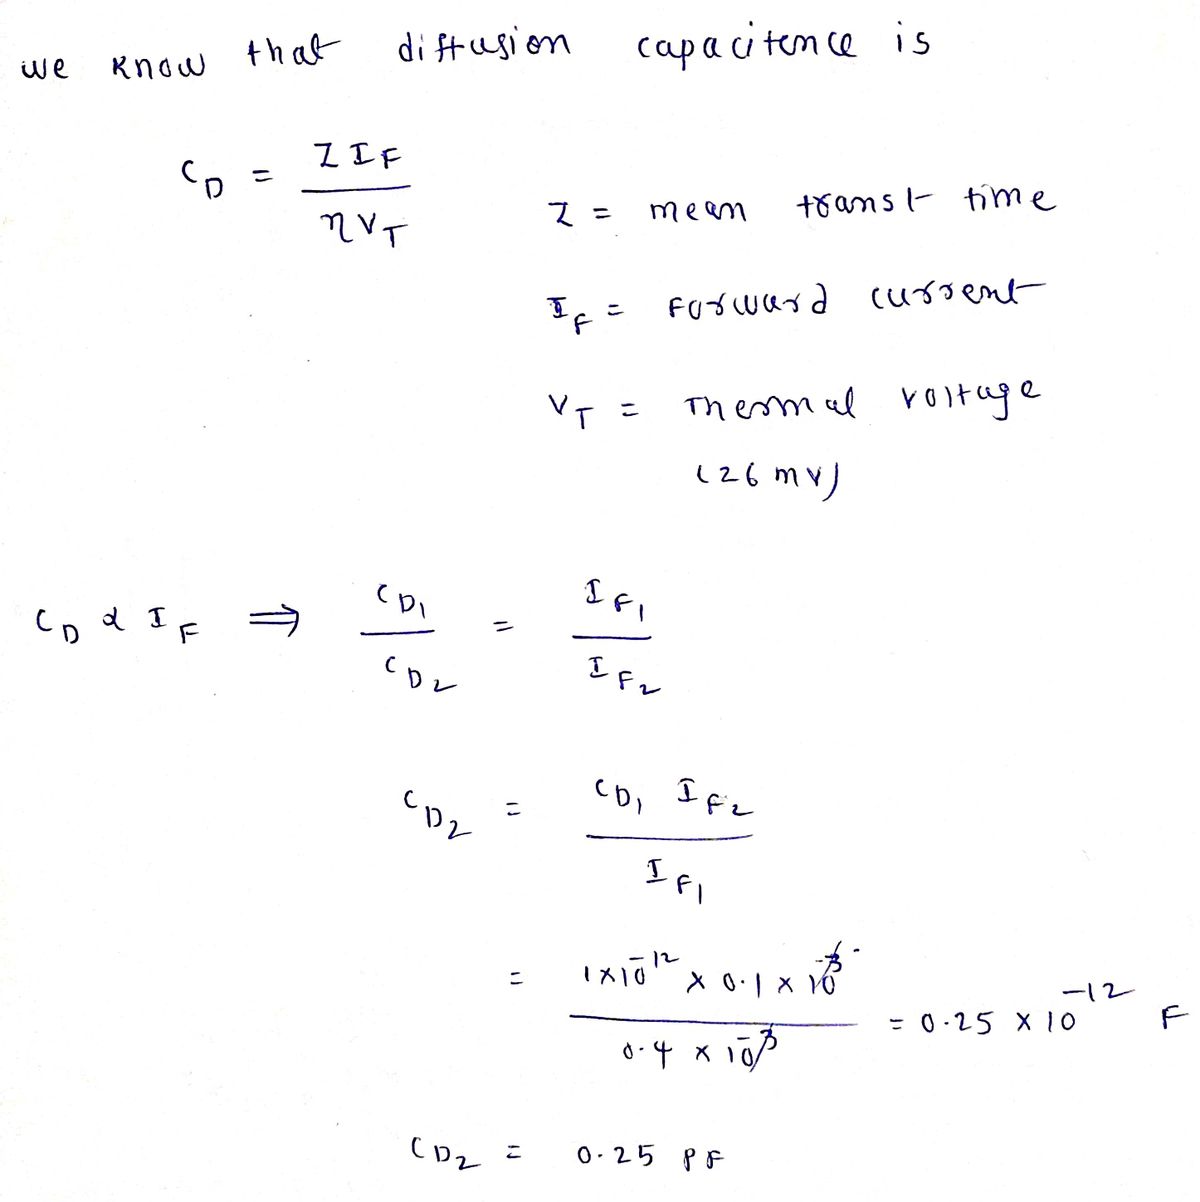 we know that diffusion capacitence is
C_D = τ I_F / η V_T
τ = mean transt time
I_F = Forward current
V_T = Thermal voltage
(26 mv)
C_D ∝ I_F ⇒ C_D1 / C_D2 = I_F1 / I_F2
C_D2 = C_D1 I_F2 / I_F1
= 1×10^-12 × 0.1 × 10^-3 / 0.4 × 10^-3 = 0.25 × 10^-12 F
C_D2 = 0.25 PF